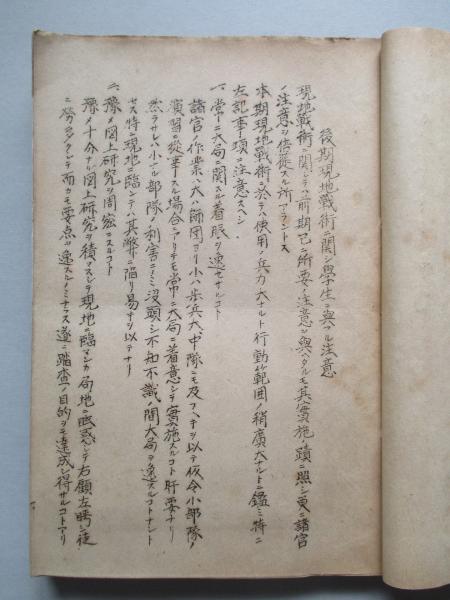 後期現地戦術ニ関シ學生ニ與フル注意
現地戦術ニ関シテハ前期已ニ所要ノ注意ヲ與ヘタルモ其實施ノ蹟ニ照シ更ニ諸官
ノ注意ヲ倍徙スル所アラントス
本期現地戦術ニ於テハ使用ノ兵力大ナルト行動ノ範囲ノ稍廣大ナルトニ鑑ミ特ニ
左記事項ニ注意スヘシ
一、常ニ大局ニ関スル着眼ヲ逸セサルコト
諸官ノ作業ハ大ハ師団ヨリ小ハ歩兵大、中隊ニモ及フヘキヲ以テ仮令小部隊ノ
演習ニ從事スル場合ニアリテモ常ニ大局ニ着意シテ實施スルコト肝要ナリ
然ラサレハ小ナル部隊ノ利害ニノミ没頭シ不知不識ノ間大局ヲ逸スルコトナシト
セス特ニ現地ニ臨ンテハ其弊ニ陥リ易キヲ以テナリ
二、豫メ図上研究ヲ周密ニスルコト
豫メ十分ナル図上研究ヲ積マスシテ現地ニ臨マンカ局地ニ眩惑シテ右顧左眄シ徒
ニ労多クシテ而カモ要点ヲ逸スルノミナラス遂ニ踏査ノ目的ヲモ達成シ得サルコトアリ